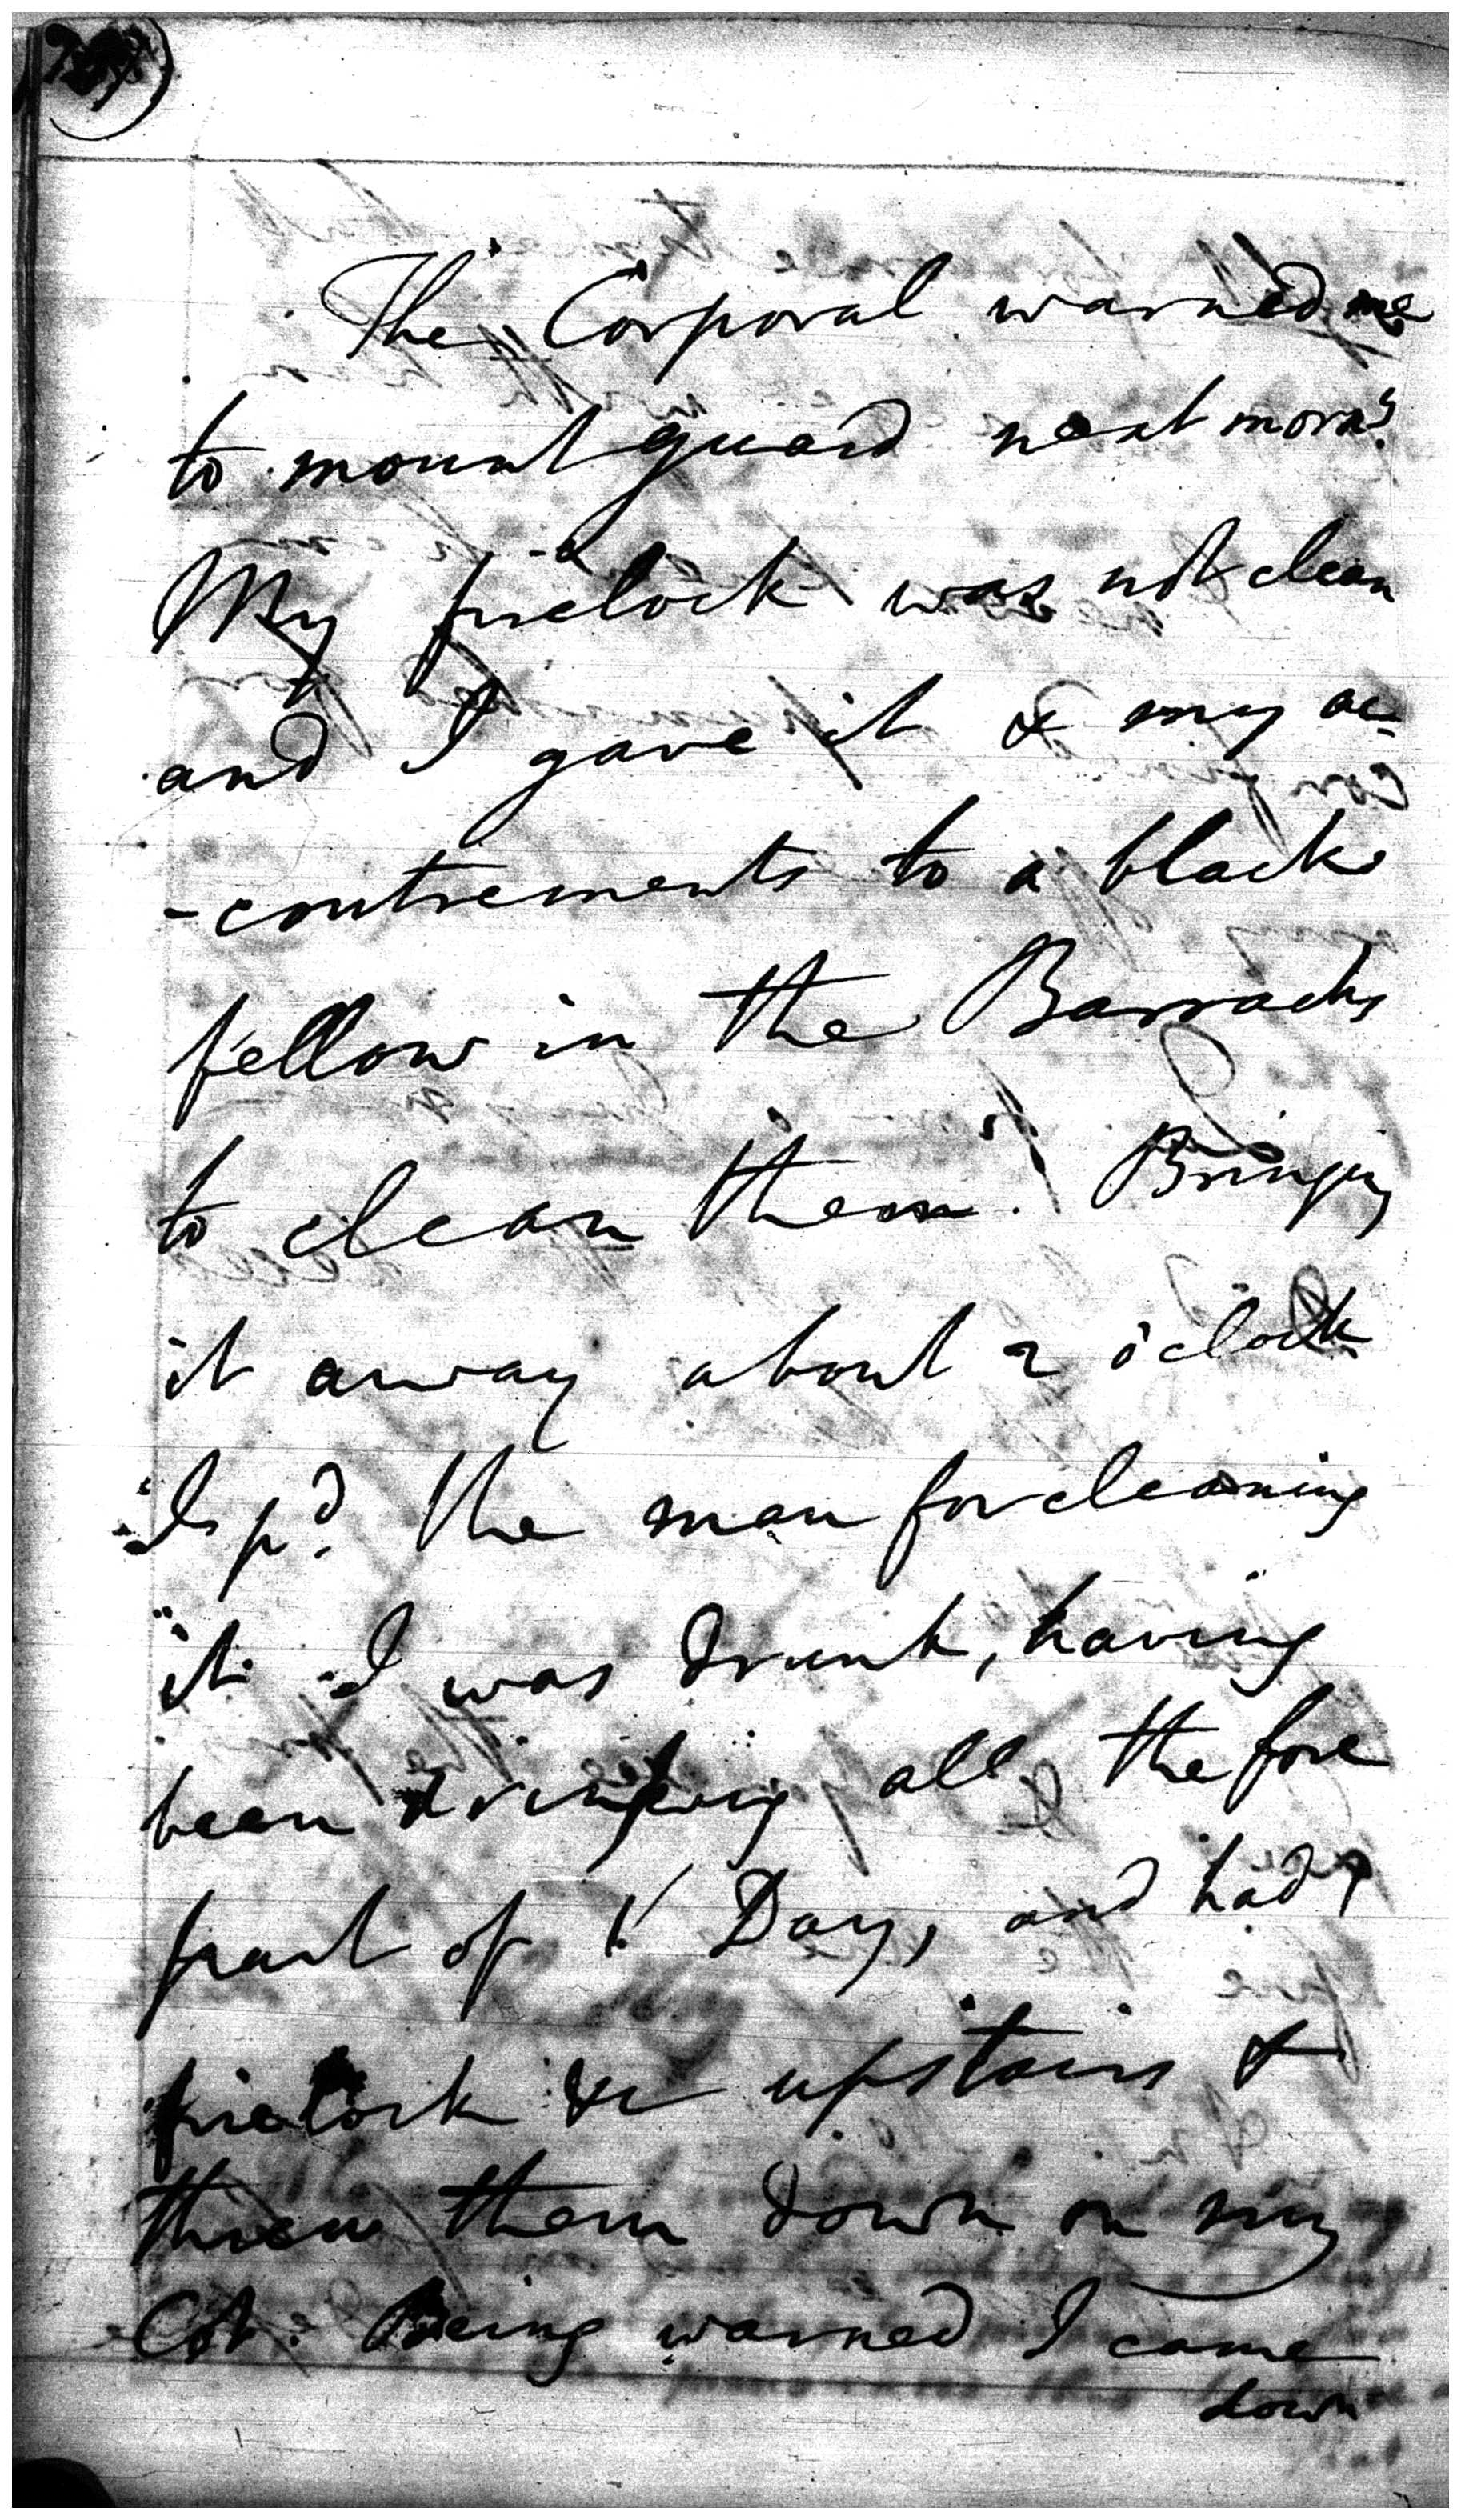 The Corporal warned me
to mount guard next morng
My firelock was not clean
and I gave it & my ac-
-coutrements to a black
fellow in the Barracks
to clean them. Bringing
it away about 2 o'clock
I pd. the man for cleaning
it. I was drunk, having
been drinking all the fore
part of ye Day, and had
firelock &c upstairs &
threw them down on my
Cot. Being warned I came
down